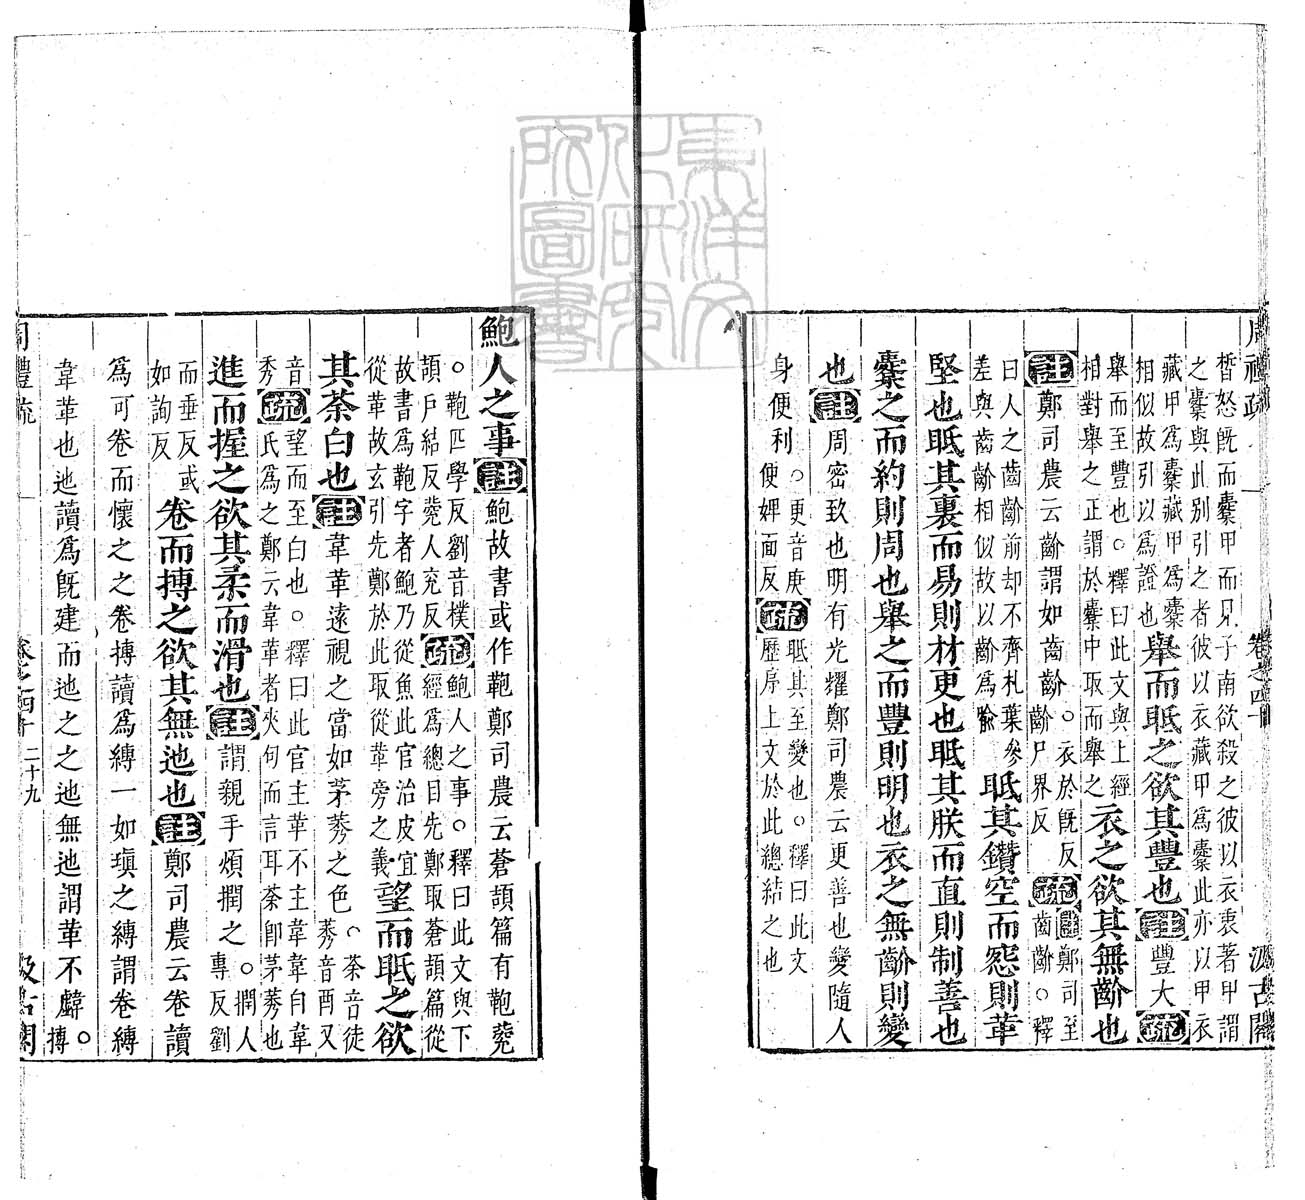 周禮疏 卷之四十 汲古閣
皙怒旣而櫜甲而見子南欲殺之彼以衣裏著甲謂
之櫜與此別引之者彼以衣藏甲爲櫜此亦以甲衣
藏甲爲櫜藏甲爲櫜
相似故引以爲證也
舉而眡之欲其豐也註豐大疏
舉而至豐也。釋曰此文與上經
相對舉之正謂於櫜中取而舉之
衣之欲其無齘也
註鄭司農云齘謂如齒齘
。衣於旣反
齘尸界反
疏
註鄭司至
齒齘。釋
曰人之齒齘前却不齊札葉參
差與齒齘相似故以齘爲喻
眡其鑽空而窓則革
堅也眡其裏而易則材更也眡其朕而直則制善也
櫜之而約則周也舉之而豐則明也衣之無齘則變
也註周密致也明有光耀鄭司農云更善也變隨人
身便利
。更音庚
便婢面反
疏
眡其至變也。釋曰此文
歷序上文於此總結之也
鮑人之事註鮑故書或作鞄鄭司農云蒼頡篇有鞄㼱
。鞄匹學反劉音樸
頡戶結反㼱人充反
疏
鮑人之事。釋曰此文與下
經爲總目先鄭取蒼頡篇從
故書爲鞄字者鮑乃從魚此官治皮宜
從革故玄引先鄭於此取從革旁之義
望而眡之欲
其荼白也註韋革遠視之當如茅莠之色
。荼音徒
莠音酉又
音
秀
疏
望而至白也。釋曰此官主革不主韋韋自韋
氏爲之鄭云韋革者夾句而言耳荼卽茅莠也
進而握之欲其柔而滑也註謂親手煩撋之
。撋人
專反劉
而垂反或
如詢反
卷而摶之欲其無迆也註鄭司農云卷讀
爲可卷而懷之之卷摶讀爲縛一如瑱之縛謂卷縛
韋革也迆讀爲旣建而迆之之迆無迆謂革不𤿎
。
摶
周禮疏 卷之四十 二十九 汲古閣
東洋文化研究所圖書